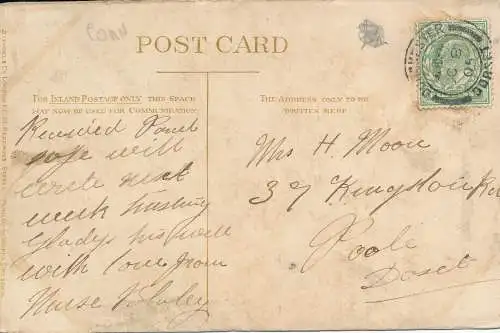 Conn
POST CARD
FOR INLAND POSTAGE ONLY THIS SPACE
MAY NOW BE USED FOR COMMUNICATION
THE ADDRESS ONLY TO BE
WRITTEN HERE
Received Parcel
safe will
write next
week trusting
Gladys is well
with love from
Nurse
Mrs H. Moon
37 Kingston Rd
Poole
Dorset